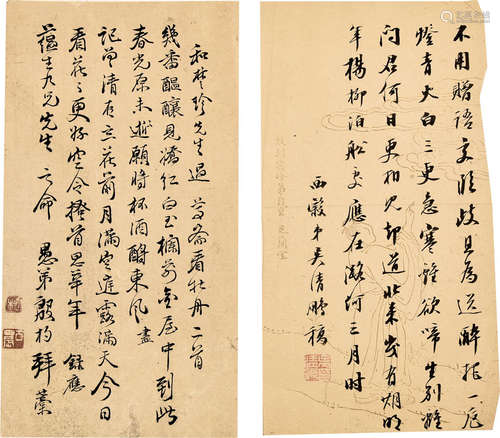 不用贈語交臨歧且為送醉拒一卮
燈青火白三更急寒雞欲啼生別離
問君何日更相見却道此來有期明
年楊柳泊船更應在潞河三月時
西穀弟吳清鵬稿
和楚珍先生過齋看牡丹二首
幾番醞釀見濃紅白玉欄前金屋中到此
春光原未逝願將杯酒酹東風 盡
記當清夜立花前月滿空庭露滿天今日
看花〻更好空令搔首思華年 錄應
蘊生九兄先生之命 愚弟殷杓拜藁